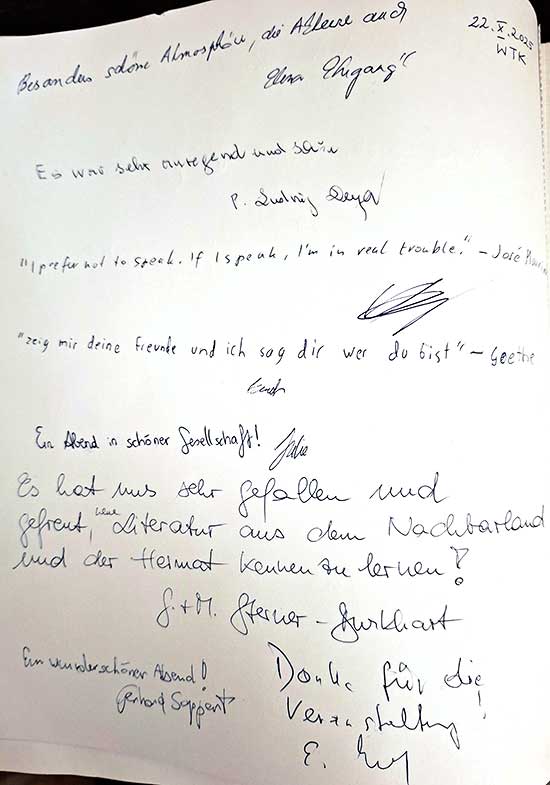 22.X.2025
WTK
Besonders schöne Atmosphäre, die auch
Elena
Es war sehr anregend und schön
P. Ludwig
"I prefer not to speak. If I speak, I'm in real trouble." – José
"zeig mir deine Freunde und ich sag dir wer du bist" – Goethe
Ein Abend in schöner Gesellschaft! Julia
Es hat uns sehr gefallen und
gefreut, neue Literatur aus dem Nachbarland
und der Heimat kennenzulernen!
G. + M. Sterner-Burkhart
Ein wunderschöner Abend!
Gerhard Sappert
Danke für die
Veranstaltung!
E.